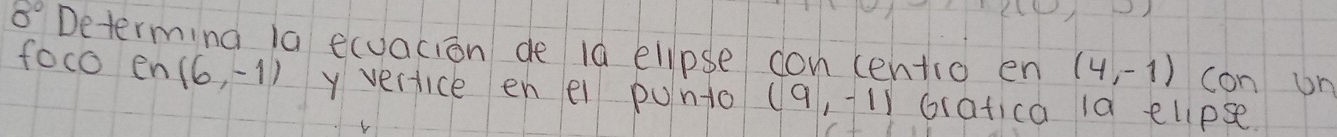 8° Determina la ecuación de la elipse con centro en (4,-1) con un
foco en (6,-1) y vertice en el punto (9,-1) Grafica la elipse